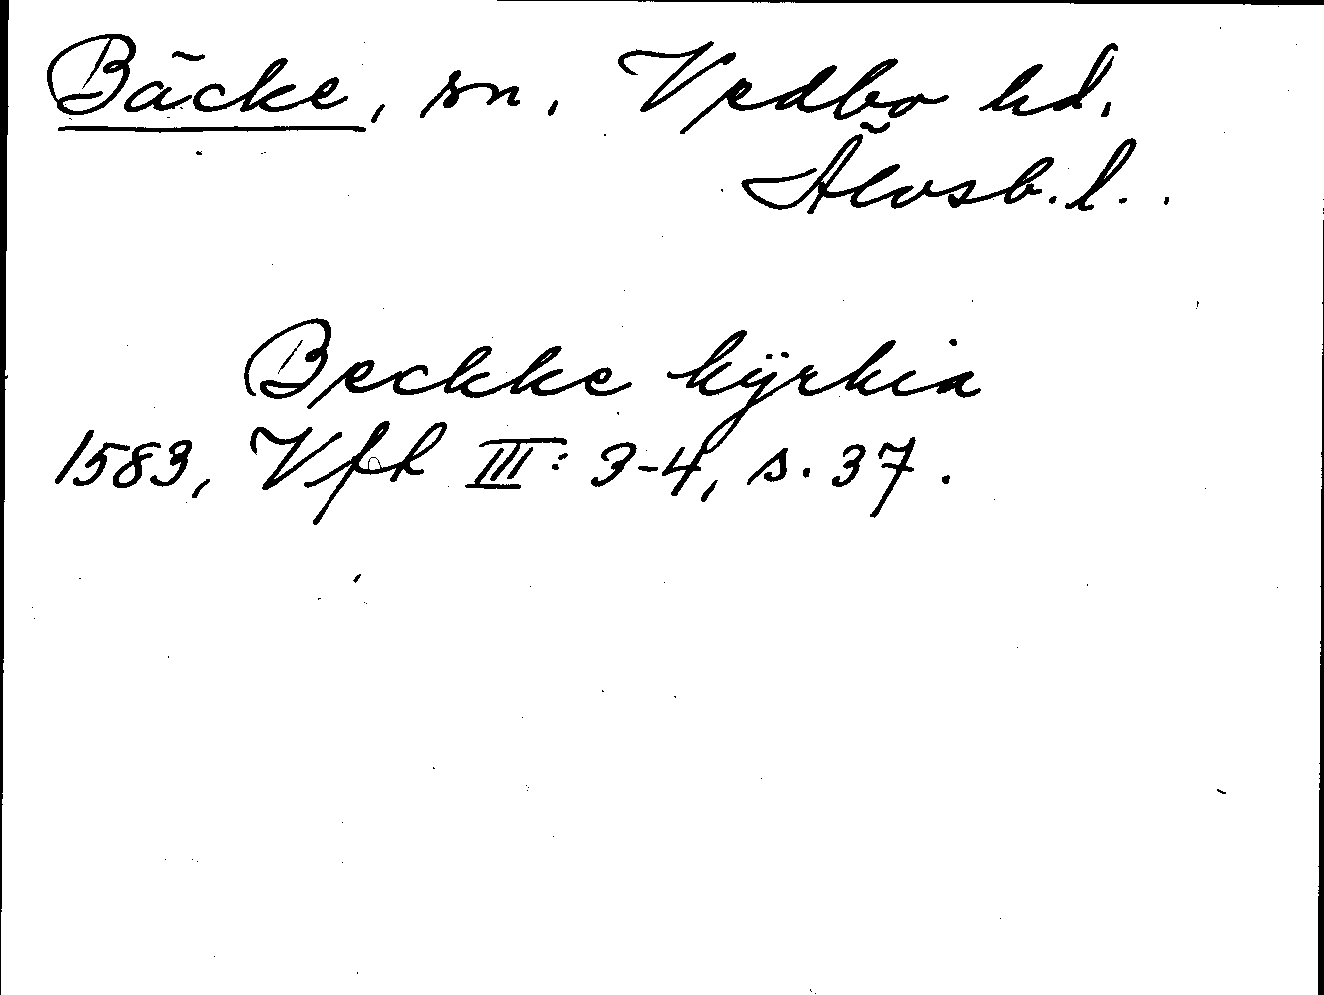 Bäcke, sn. Vedbo hd.
Älvsb. l.
Beckke kÿrkia
1583, Vfh III: 3-4, s. 37.